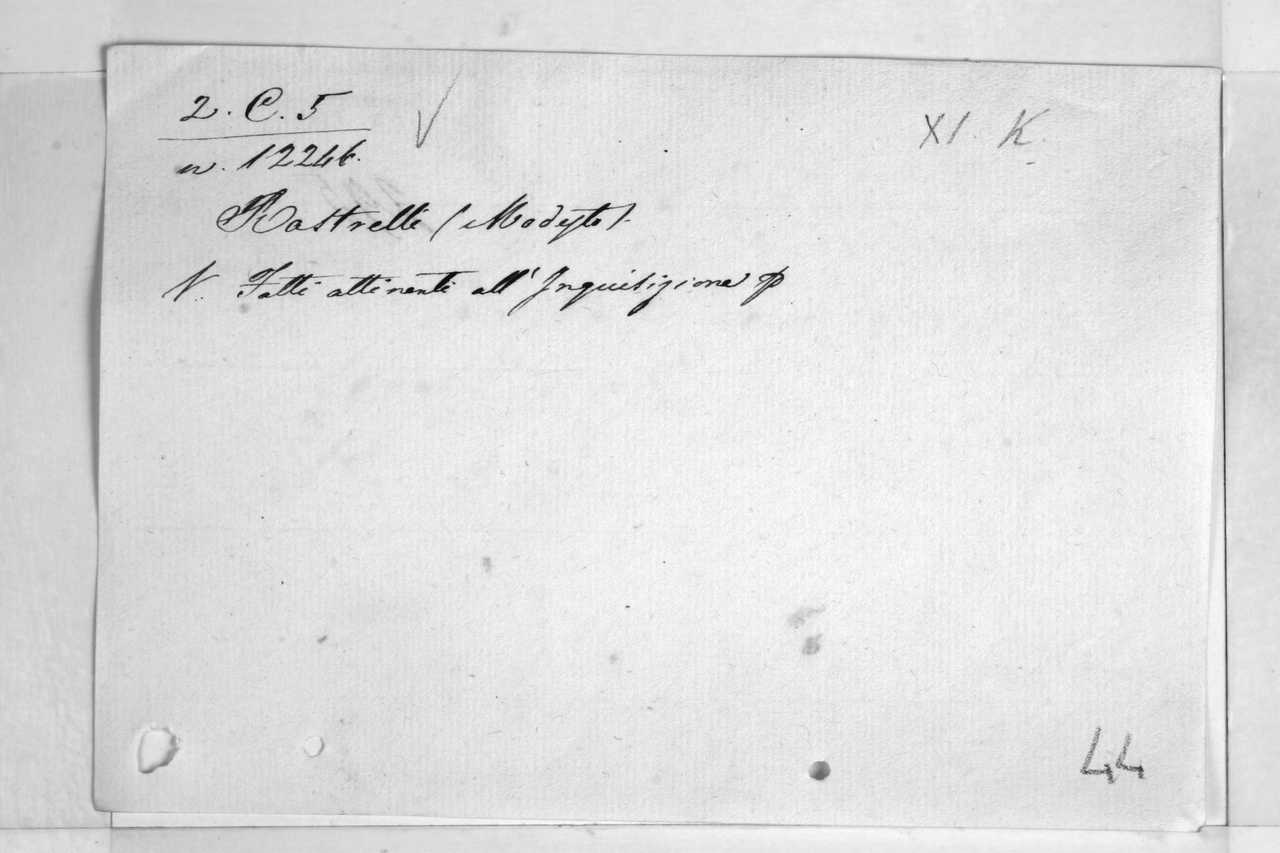 2. C. 5
XI. K.
n. 12246.
Rastrelli (Modesto)
V. Fatti attinenti all'Inquisizione
44